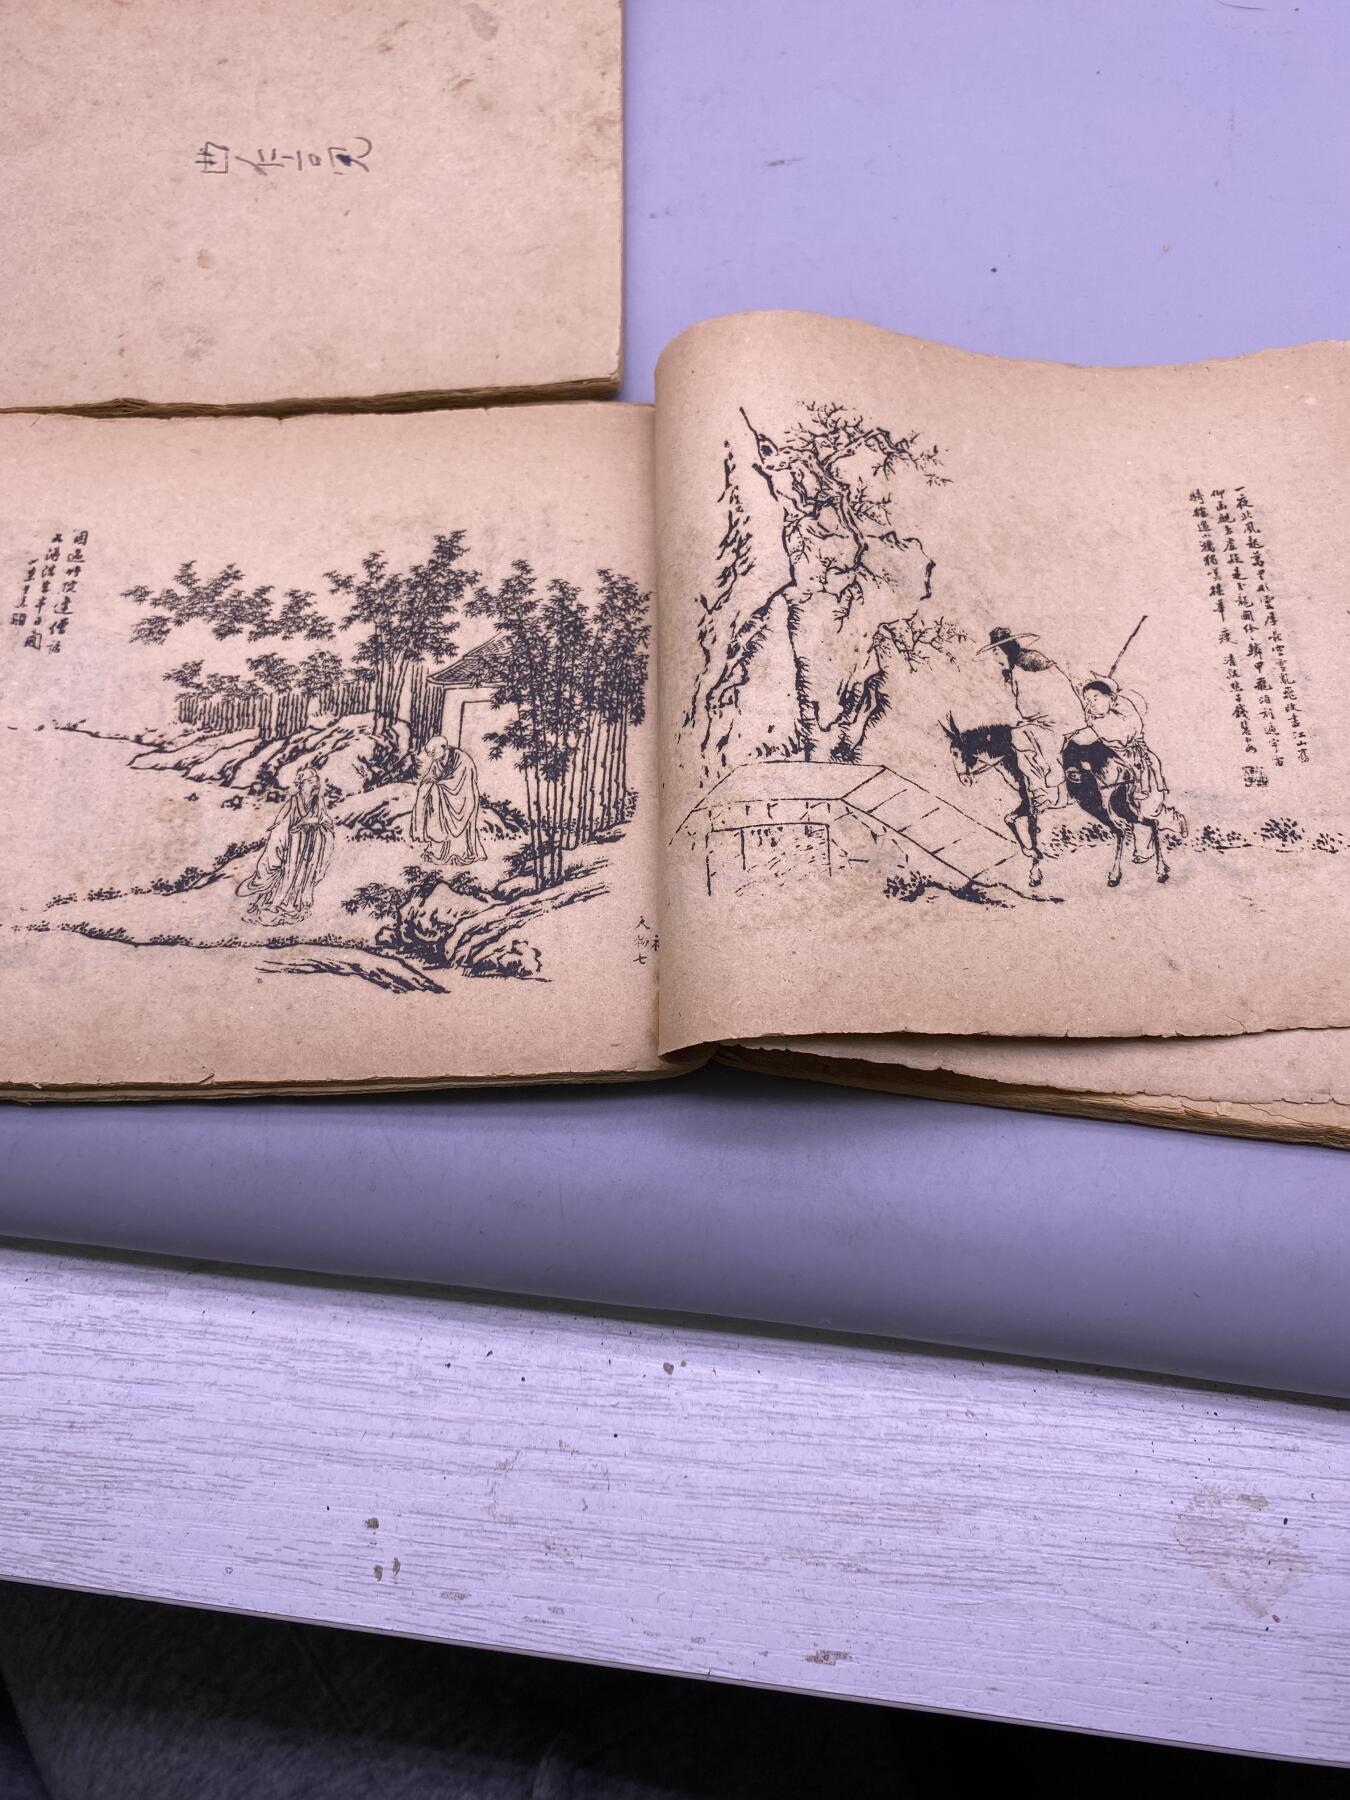 一夜北風起萬里彤雲厚長空雪亂飛改盡江山舊
仰面觀太虛疑是玉龍鬭紛紛鱗甲飛頃刻遍宇宙
騎驢過小橋獨嘆梅華瘦 清谿樵子錢慧安
人物七
因過竹院逢僧話
又得浮生半日閒